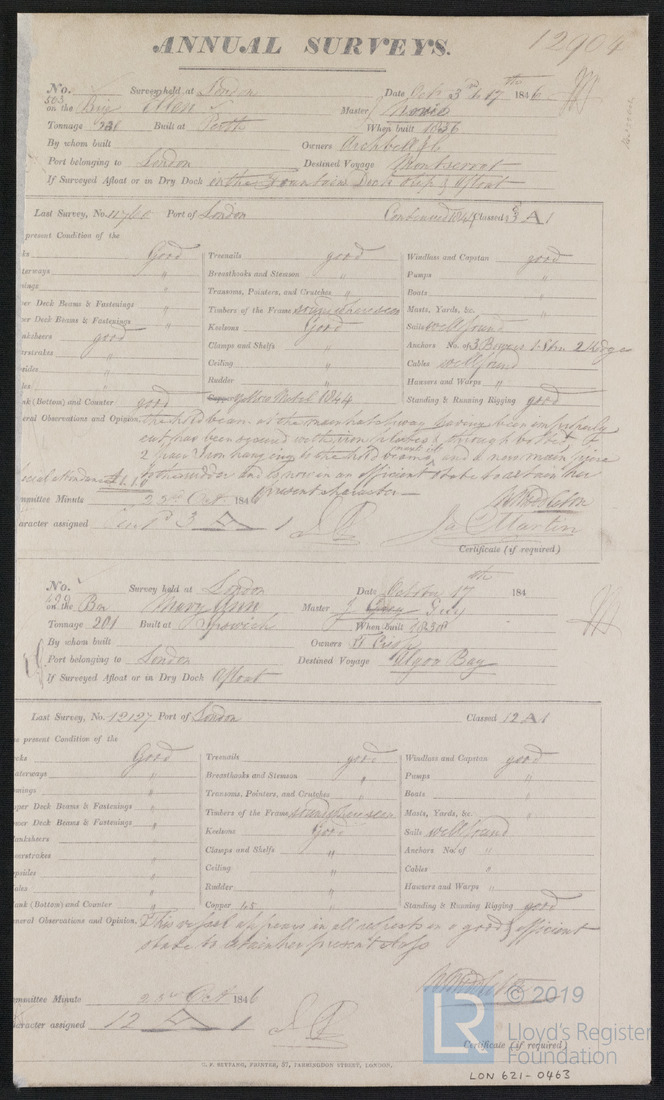 ANNUAL SURVEYS. 12904
No. Survey held at London Date Oct 3rd & 17th 1846
503 on the Brig Ellen Master
Tonnage Built at Perth When built 1836
By whom built Owners
Port belonging to London Destined Voyage Montserrat
If Surveyed Afloat or in Dry Dock in the Fountain Dock & Afloat
Last Survey, No. Port of London Continued Classed A 1
present Condition of the
Good Treenails good Windlass and Capstan good
terways " Breasthooks and Stemson " Pumps "
" Transoms, Pointers, and Crutches " Boats "
er Deck Beams & Fastenings " Timbers of the Frame where seen Masts, Yards, &c. "
er Deck Beams & Fastenings " Keelsons Good Sails well found
nksheers good Clamps and Shelfs " Anchors No. of 3 Bowers 1 Strm 2 Kedges
erstrakes " Ceiling " Cables well found
" Rudder " Hawsers and Warps "
nk (Bottom) and Counter good Yellow Metal 1844 Standing & Running Rigging good
eral Observations and Opinion, the hold beam at the main hatchway having been improperly
cut has been repaired with iron plates & through bolted &
2 pair Iron hanging to the hold beams & a new main piece
to the rudder and is now in an efficient state to retain her
present character —
mmittee Minute 22nd Oct. 1846
aracter assigned 3 A 1 Jas Martin
Certificate (if required)
No. Survey held at London Date October 17th 184
on the Mary Ann Master Guy
Tonnage 201 Built at Ipswich When built 1830
By whom built Owners
Port belonging to London Destined Voyage Algoa Bay
If Surveyed Afloat or in Dry Dock Afloat
Last Survey, No. 12127 Port of London Classed 12 A 1
s present Condition of the
cks Good Treenails good Windlass and Capstan good
aterways " Breasthooks and Stemson " Pumps "
" Transoms, Pointers, and Crutches " Boats "
pper Deck Beams & Fastenings " Timbers of the Frame where seen Masts, Yards, &c. "
wer Deck Beams & Fastenings " Keelsons Good Sails well found
anksheers " Clamps and Shelfs " Anchors No. of "
oorstrakes " Ceiling " Cables "
opsides " Rudder " Hawsers and Warps "
ales " Copper 45 Standing & Running Rigging good
ank (Bottom) and Counter "
neral Observations and Opinion, This vessel appears in all respects in a good & efficient
state to retain her present class
mmittee Minute 22nd Oct. 1846
aracter assigned 12 A 1
Certificate (if required)
LR © 2019
Lloyd's Register
Foundation
LON 621-0463